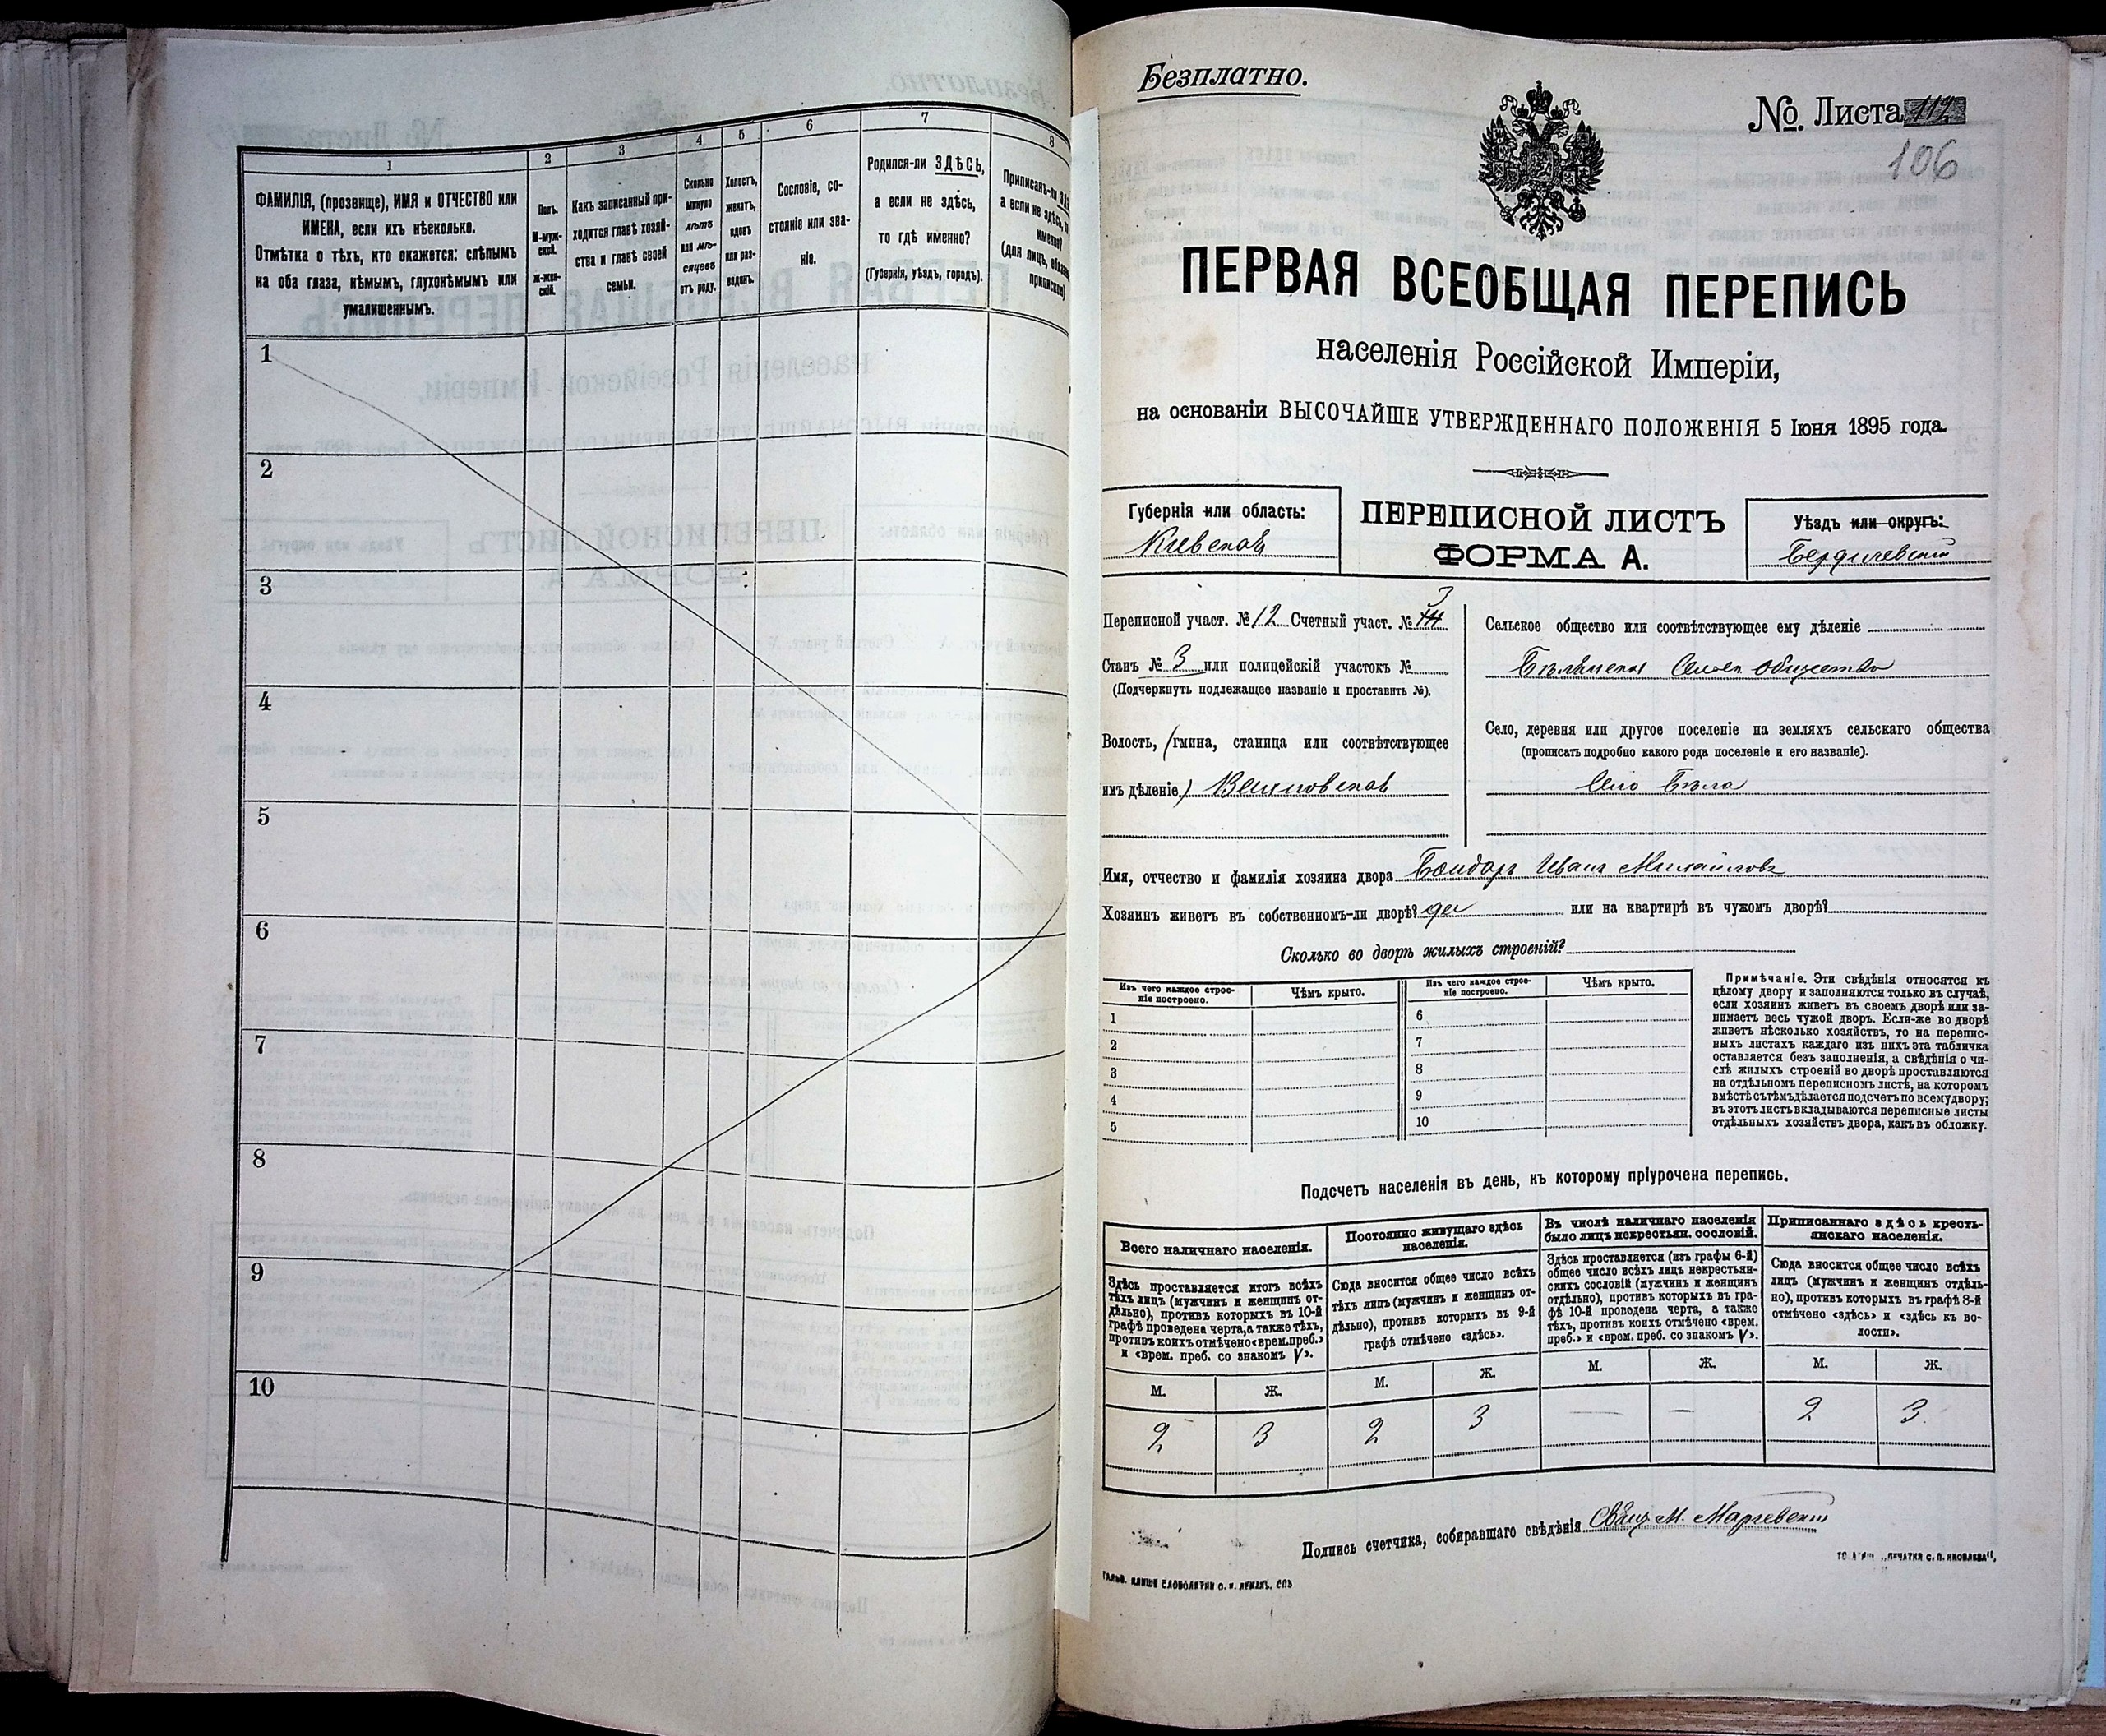 1
ФАМИЛІЯ, (прозвище), ИМЯ и ОТЧЕСТВО или
ИМЕНА, если ихъ нѣсколько.
Отмѣтка о тѣхъ, кто окажется: слѣпымъ
на оба глаза, нѣмымъ, глухонѣмымъ или
умалишеннымъ.
2
Полъ.
М-муж-
ской.
Ж-жен-
скій.
3
Какъ записанный при-
ходится главѣ хозяй-
ства и главѣ своей
семьи.
4
Сколько
минуло
лѣтъ
или мѣ-
сяцевъ
отъ роду.
5
Холостъ,
женатъ,
вдовъ
или раз-
веденъ.
6
Сословіе, со-
стояніе или зва-
ніе.
7
Родился-ли ЗДѢСЬ,
а если не здѣсь,
то гдѣ именно?
(Губернія, уѣздъ, городъ).
8
Приписанъ-ли
а если не здѣсь,
именно?
(для лицъ,
1
2
3
4
5
6
7
8
9
10
Безплатно.
№. Листа 112
106
ПЕРВАЯ ВСЕОБЩАЯ ПЕРЕПИСЬ
населенія Россійской Имперіи,
на основаніи ВЫСОЧАЙШЕ УТВЕРЖДЕННАГО ПОЛОЖЕНІЯ 5 Іюня 1895 года.
Губернія или область:
Кіевская
ПЕРЕПИСНОЙ ЛИСТЪ
ФОРМА А.
Уѣздъ или округъ:
Бердичевскій
Переписной участ. № 12 Счетный участ. № 3
Станъ № 3 или полицейскій участокъ №
(Подчеркнуть подлежащее названіе и проставить №).
Волость, (гмина, станица или соотвѣтствующее
имъ дѣленіе)
Сельское общество или соотвѣтствующее ему дѣленіе
Общество
Село, деревня или другое поселеніе на земляхъ сельскаго общества
(прописать подробно какого рода поселеніе и его названіе).
Село Бѣла
Имя, отчество и фамилія хозяина двора Бондарь Иванъ Михайловъ
Хозяинъ живетъ въ собственномъ-ли дворѣ? да или на квартирѣ въ чужомъ дворѣ?
Сколько во дворѣ жилыхъ строеній?
Изъ чего каждое строе-
ніе построено.
Чѣмъ крыто.
Изъ чего каждое строе-
ніе построено.
Чѣмъ крыто.
1
2
3
4
5
6
7
8
9
10
Примѣчаніе. Эти свѣдѣнія относятся къ
цѣлому двору и заполняются только въ случаѣ,
если хозяинъ живетъ въ своемъ дворѣ или за-
нимаетъ весь чужой дворъ. Если-же во дворѣ
живетъ нѣсколько хозяйствъ, то на перепис-
ныхъ листахъ каждаго изъ нихъ эта табличка
оставляется безъ заполненія, а свѣдѣнія о чи-
слѣ жилыхъ строеній во дворѣ проставляются
на отдѣльномъ переписномъ листѣ, на которомъ
вмѣстѣ съ тѣмъ дѣлается подсчетъ по всему двору;
въ этотъ листъ вкладываются переписные листы
отдѣльныхъ хозяйствъ двора, какъ въ обложку.
Подсчетъ населенія въ день, къ которому пріурочена перепись.
Всего наличнаго населенія.
Здѣсь проставляется итогъ всѣхъ
тѣхъ лицъ (мужчинъ и женщинъ от-
дѣльно), противъ которыхъ въ 10-й
графѣ проведена черта, а также тѣхъ,
противъ коихъ отмѣчено «врем. преб.»
и «врем. преб. со знакомъ V».
Постоянно живущаго здѣсь
населенія.
Сюда вносится общее число всѣхъ
тѣхъ лицъ (мужчинъ и женщинъ от-
дѣльно), противъ которыхъ въ 9-й
графѣ отмѣчено «здѣсь».
Въ числѣ наличнаго населенія
было лицъ некрестьян. сословій.
Здѣсь проставляется (изъ графы 6-й)
общее число всѣхъ лицъ некрестьян-
скихъ сословій (мужчинъ и женщинъ
отдѣльно), противъ которыхъ въ гра-
фѣ 10-й проведена черта, а также
тѣхъ, противъ коихъ отмѣчено «врем.
преб.» и «врем. преб. со знакомъ V».
Приписаннаго здѣсь кресть-
янскаго населенія.
Сюда вносится общее число всѣхъ
лицъ (мужчинъ и женщинъ отдѣль-
но), противъ которыхъ въ графѣ 8-й
отмѣчено «здѣсь» и «здѣсь въ во-
лости».
М. Ж. М. Ж. М. Ж. М. Ж.
2 3 2 3 — — 2 3
Подпись счетчика, собиравшаго свѣдѣнія М.
„ПЕЧАТНЯ С. П. ЯКОВЛЕВА“,